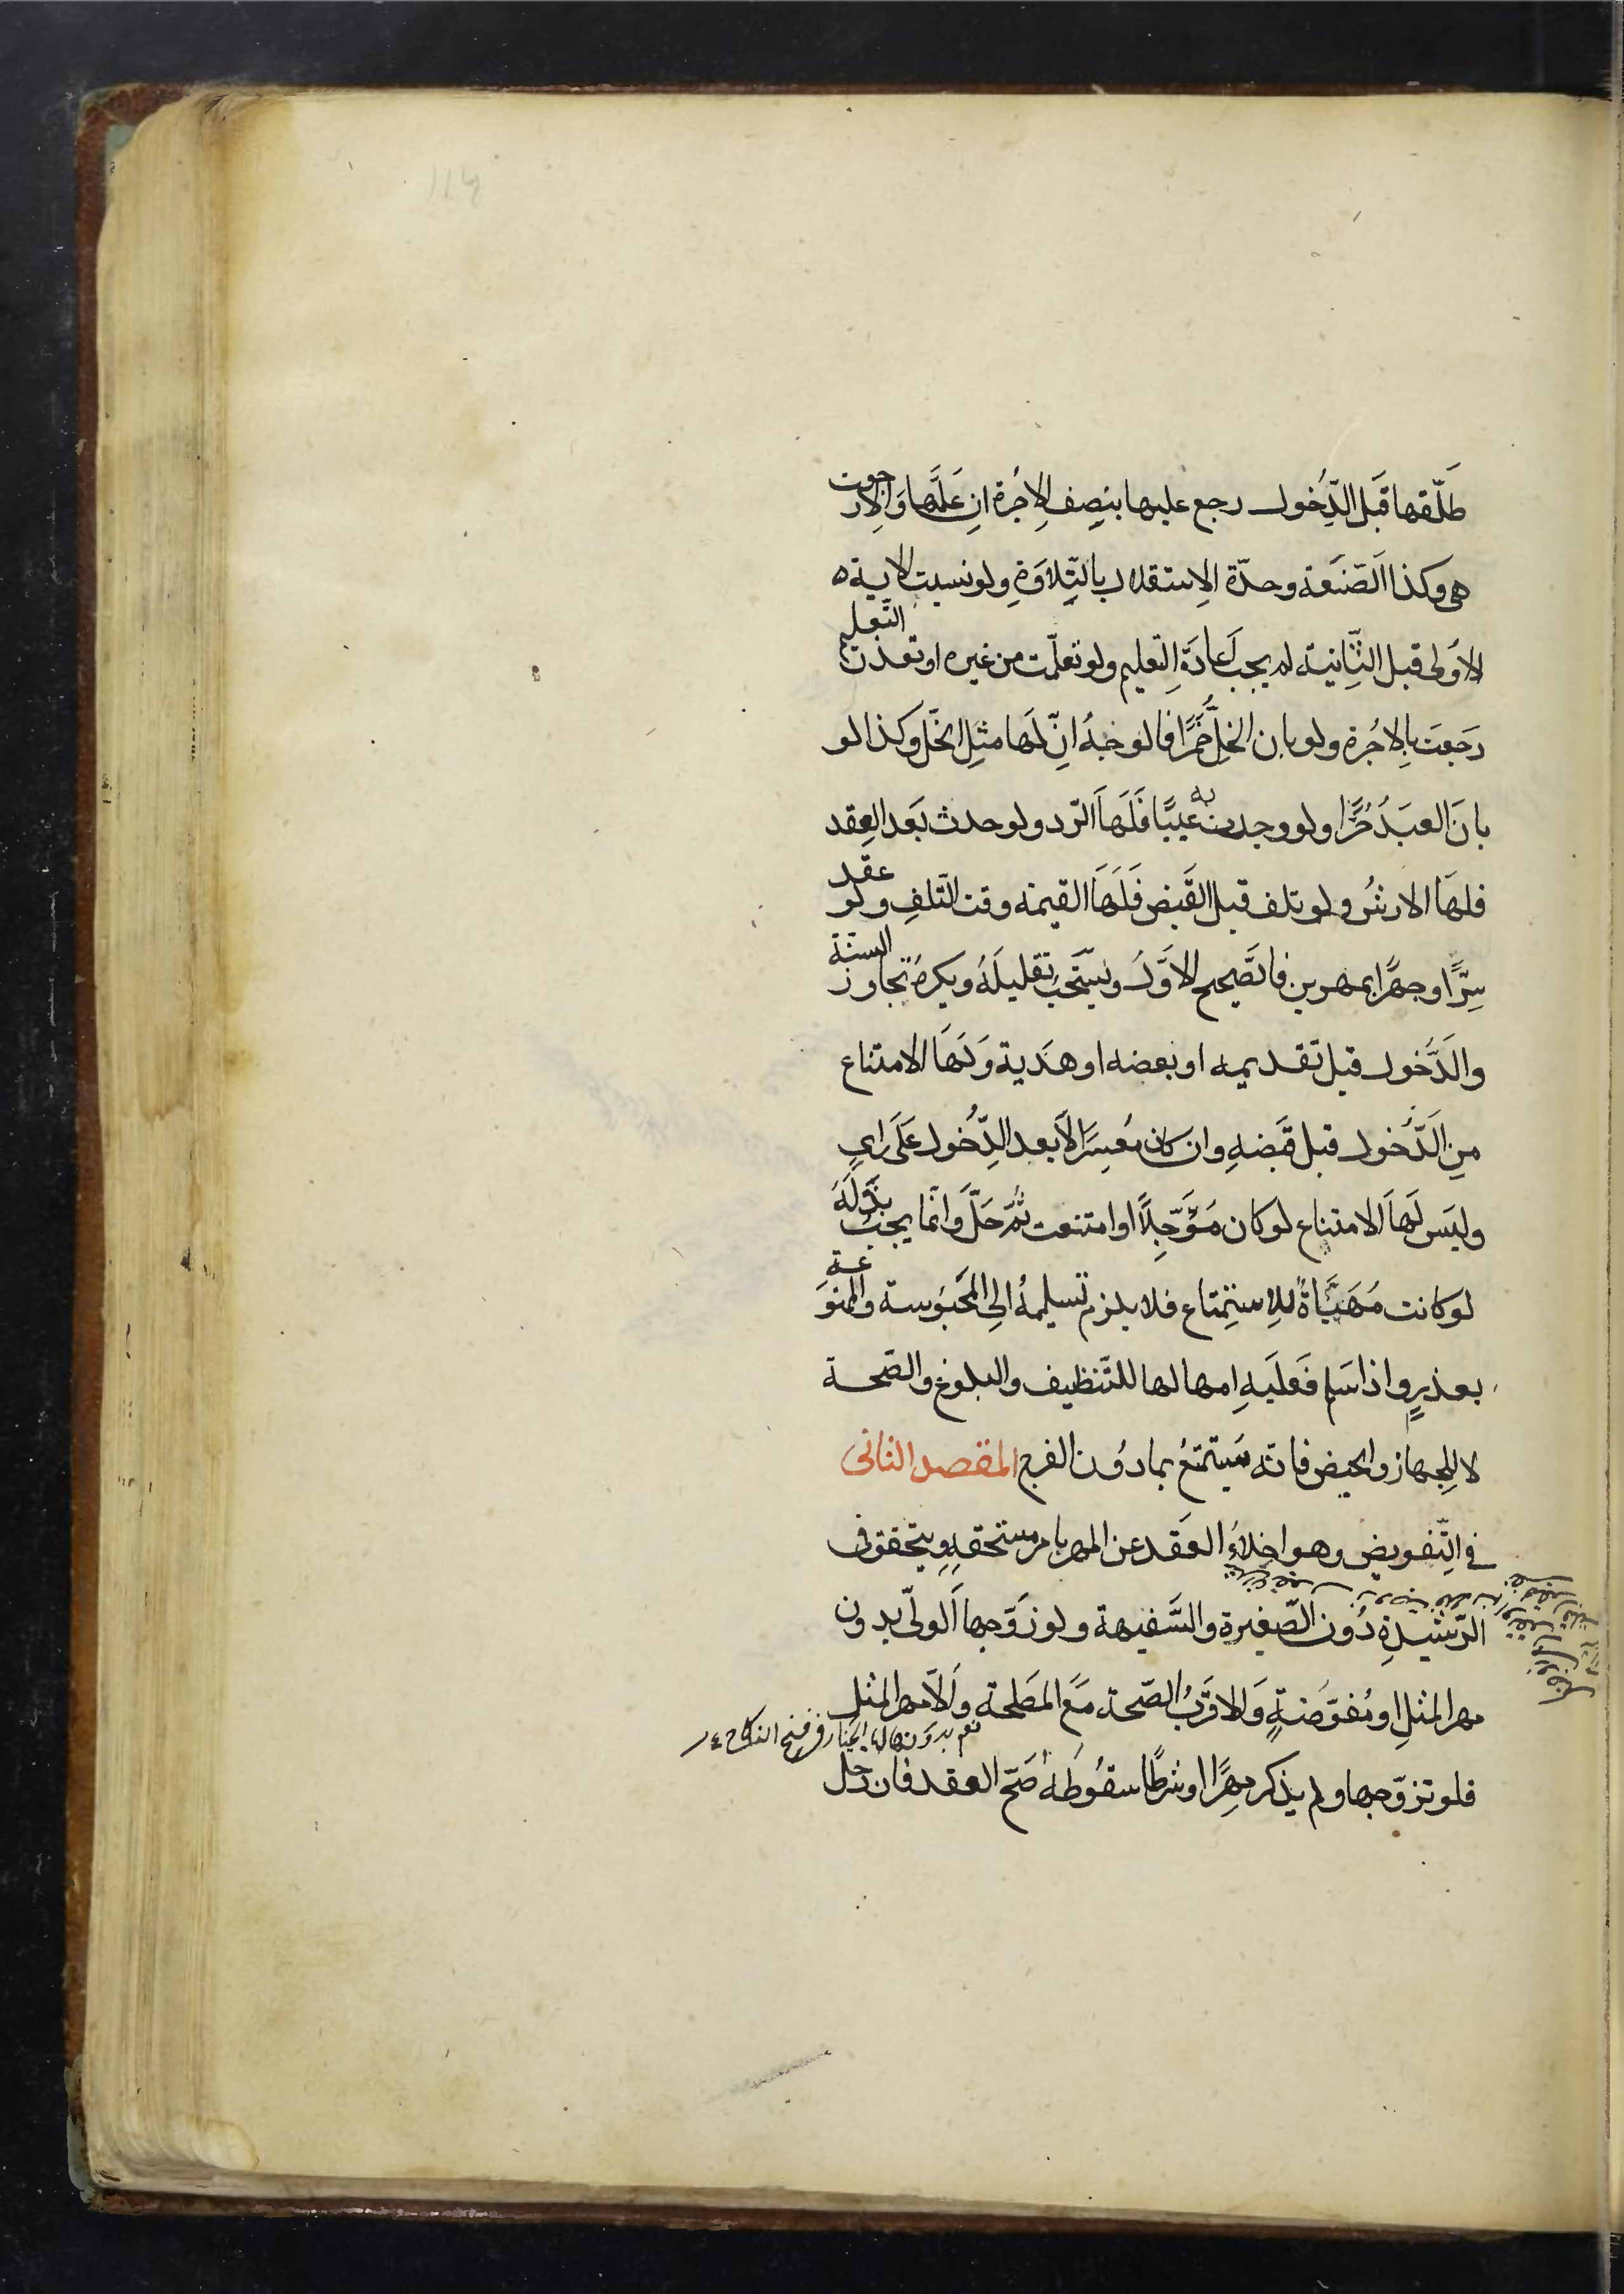 طَلّقها قَبل الدّخول رجع عليها بنصف الاجُرة ان عَلّمها وَالّا رجعت
هى وكذا الصّنعَة وحدّة الاستقلال بالتّلاوَةِ ولو نسيت الاية
الاوُلى قبل الثّانية لم يجب اعادَة التعليم ولو تعلّمت من غيره او تعذّر التّعلم
رَجعَت بالاجُرة ولو بان الخلّ خمرًا فالوجهُ انّ لَها مثل الخَلّ وكذا لو
بانَ العبَدُ حُرًّا ولو وجدت به عَيبًا فَلَهَا الرّد ولو حدث بَعد العقِد
فلهَا الارشُ ولو تلف قبل القَبض فَلَهَا القيمة وقت التّلفِ ولو عقد
سِرًّا وجهرًا بمهرين فالصَّحيح الاوّلُ ويُستَحَبّ تقليلهُ ويكرهُ تجاوز السنّة
والدَّخول قبل تقديمه او بعضه او هَدية وَلَهَا الامتناع
مِن الدّخُول قبل قَبضهِ وان كان مُعسِرًا لا بعد الدّخُول عَلَى رايٍ
وليَس لَهَا الامتناع لو كان مُؤَجّلًا او امتنعت ثمّ حَلّ وانّما يجبُ بَذلهُ
لو كانت مُهَيَّاةً للاستِمتاع فلا يلزم تسليمهُ الى المحَبوُسة والممنوَعة
بعذرٍ واذا سَلم فعَليَهِ امهالها للتّنظيف والبلوُغ والصّحة
لا للجِهاز والحيض فانّه يَستمتعُ بمادوُن الفرج المقصد الثانى
في التّفويض وهو اخلاءُ العقَد عن المهر بامر مستحقهِ ويتحقق فى
الرّشيدةِ دوُن الصّغيرة والسَّفيهة ولو زوّجها الَولىّ بدون
مهر المثلِ او مُفوّضَةً وَالاقرَبُ الصّحة مَعَ المصَلحة وَالّا مهر المثل
نعم بدون لها الخيار فى فسخ النكاح
فلو تزوّجها ولم يذكر مهرًا او شرَطا سقوُطهُ صَحّ العقد فان دخل